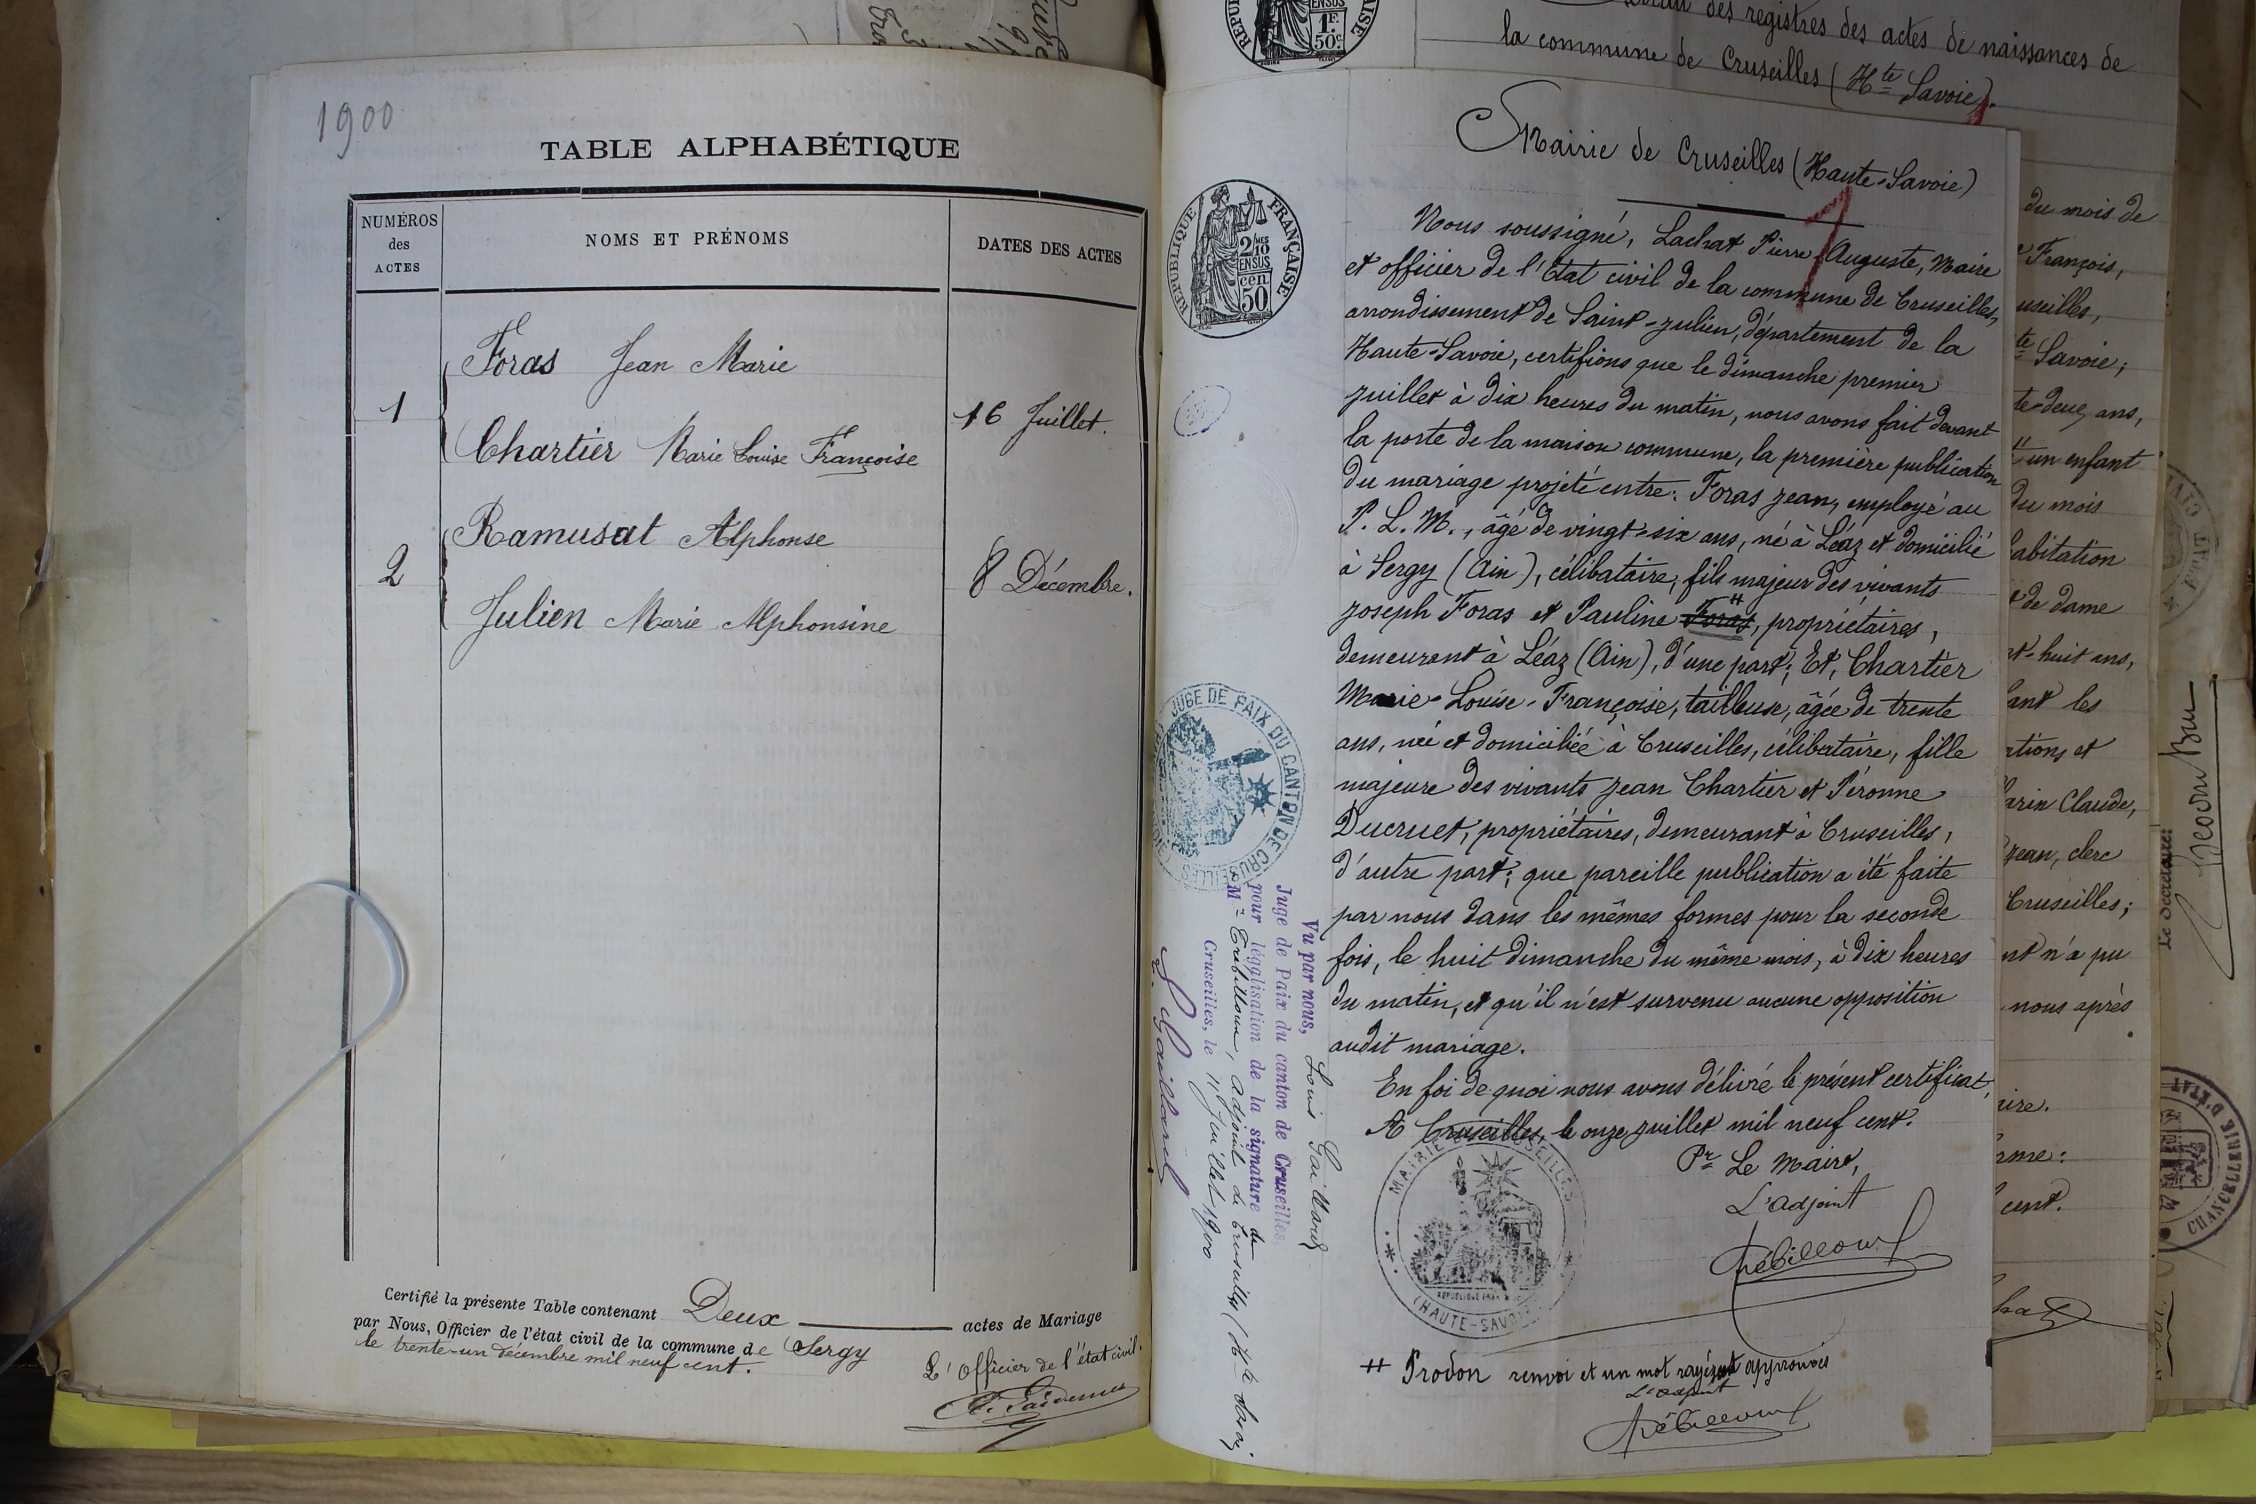 1900
TABLE ALPHABÉTIQUE
NUMÉROS
des
ACTES
NOMS ET PRÉNOMS
DATES DES ACTES
Foras Jean Marie
1
16 Juillet.
Chartier Marie Louise Françoise
Ramusat Alphonse
2
8 Décembre.
Julien Marie Alphonsine
Certifié la présente Table contenant Deux actes de Mariage
par Nous, Officier de l'état civil de la commune de Sergy
le trente-un décembre mil neuf cent.
L'Officier de l'état civil.
1F.
50c.
des registres des actes de naissances de
la commune de Cruseilles (Hte Savoie).
Mairie de Cruseilles (Haute-Savoie)
1
RÉPUBLIQUE FRANÇAISE
2/10
EN SUS
50
cen
Nous soussigné, Lachat Pierre Auguste, Maire
et officier de l'Etat civil de la commune de Cruseilles,
arrondissement de Saint-Julien, département de la
Haute-Savoie, certifions que le dimanche premier
juillet à dix heures du matin, nous avons fait devant
la porte de la maison commune, la première publication
du mariage projeté entre: Foras Jean, employé au
P. L. M., âgé de vingt-six ans, né à Léaz et domicilié
à Sergy (Ain), célibataire, fils majeur des vivants
Joseph Foras et Pauline Foras #, propriétaires,
demeurant à Léaz (Ain), d'une part; Et, Chartier
Marie-Louise-Françoise, tailleuse, âgée de trente
ans, née et domiciliée à Cruseilles, célibataire, fille
majeure des vivants Jean Chartier et Péronne
Ducruet, propriétaires, demeurant à Cruseilles,
d'autre part; que pareille publication a été faite
par nous dans les mêmes formes pour la seconde
fois, le huit dimanche du même mois, à dix heures
du matin, et qu'il n'est survenu aucune opposition
audit mariage.
En foi de quoi nous avons délivré le présent certificat,
A Cruseilles, le onze juillet mil neuf cent.
Pr Le Maire,
L'adjoint
Trébilloux
MAIRIE DE CRUSEILLES
(HAUTE-SAVOIE)
# Prodon renvoi et un mot rayé approuvés
L'adjoint
Trébilloux
JUGE DE PAIX DU CANTON DE CRUSEILLES
Vu par nous, Louis Gaillard
Juge de Paix du canton de Cruseilles,
pour légalisation de la signature de
Mr Trébilloux, adjoint de Cruseilles (Hte Savoie
Cruseilles, le 11 Juillet 1900
L. Gaillard
du mois de
François,
useilles,
te Savoie;
te-deux ans,
un enfant
du mois
abitation
de dame
t-huit ans,
ant les
ations et
arin Claude,
Jean, clerc
Cruseilles;
nt n'a pu
nous après
aire.
rme:
cent.
CHANCELLERIE D'ETAT